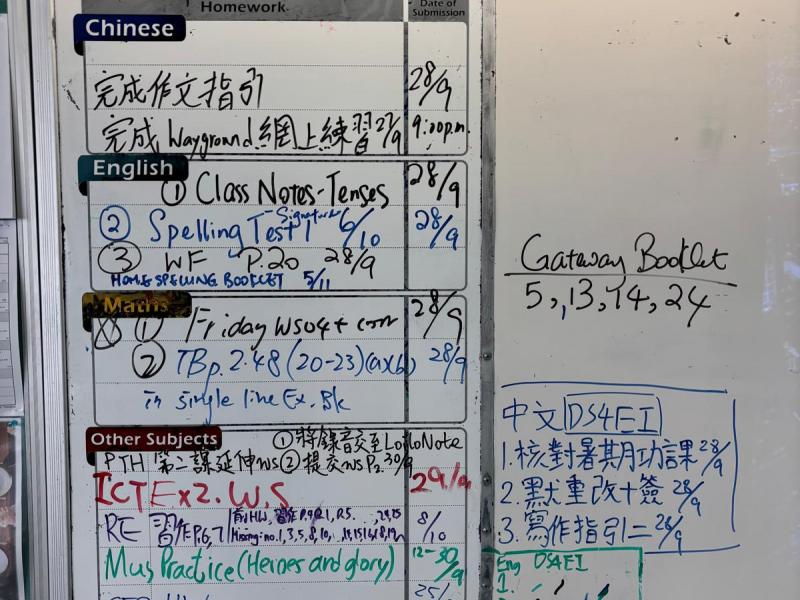 Homework Date of Submission
Chinese
完成作文指引 28/9
完成 Wayground 網上練習 27/9 9:00p.m.
English
① Class Notes-Tenses 28/9
② Spelling Test 1 -Signature 6/10 28/9
③ WF P.20 28/9
HOME SPELLING BOOKLET 5/11
Maths
① Friday WS04 + corr 28/9
② TB p.2.48 (20-23)(a)(b) 28/9
in single line Ex. Bk
Other Subjects ①將錄音交至LoiloNote
PTH 第二課延伸WS ② 提交WS P2 30/9
ICT Ex2. W.S 29/9
RE 習作P.6,7 8/10
Missing: no. 1, 3, 5, 8, 10,
Mus Practice (Heroes and glory) 12-30/9
25/
Gateway Booklet
5, 13, 14, 24
中文 DS4EI
1. 核對暑期功課 28/9
2. 默書重改+簽 28/9
3. 寫作指引二 28/9
Eng DS4EI
1.